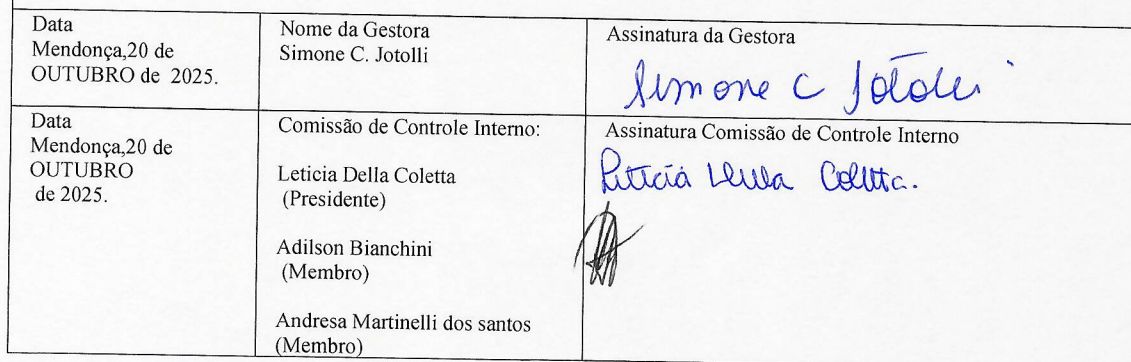 Data
Mendonça,20 de
OUTUBRO de 2025.
Nome da Gestora
Simone C. Jotolli
Assinatura da Gestora
Simone C Jotolli
Data
Mendonça,20 de
OUTUBRO
de 2025.
Comissão de Controle Interno:
Leticia Della Coletta
(Presidente)
Adilson Bianchini
(Membro)
Andresa Martinelli dos santos
(Membro)
Assinatura Comissão de Controle Interno
Leticia Della Coletta.